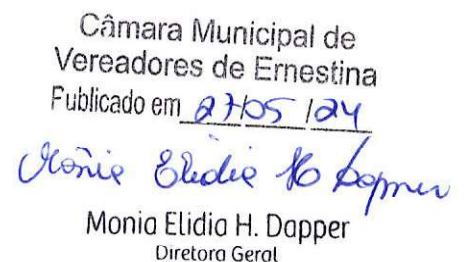 Câmara Municipal de
Vereadores de Ernestina
Publicado em 27/05/24
Monia Elidia H Dapper
Monia Elidia H. Dapper
Diretora Geral